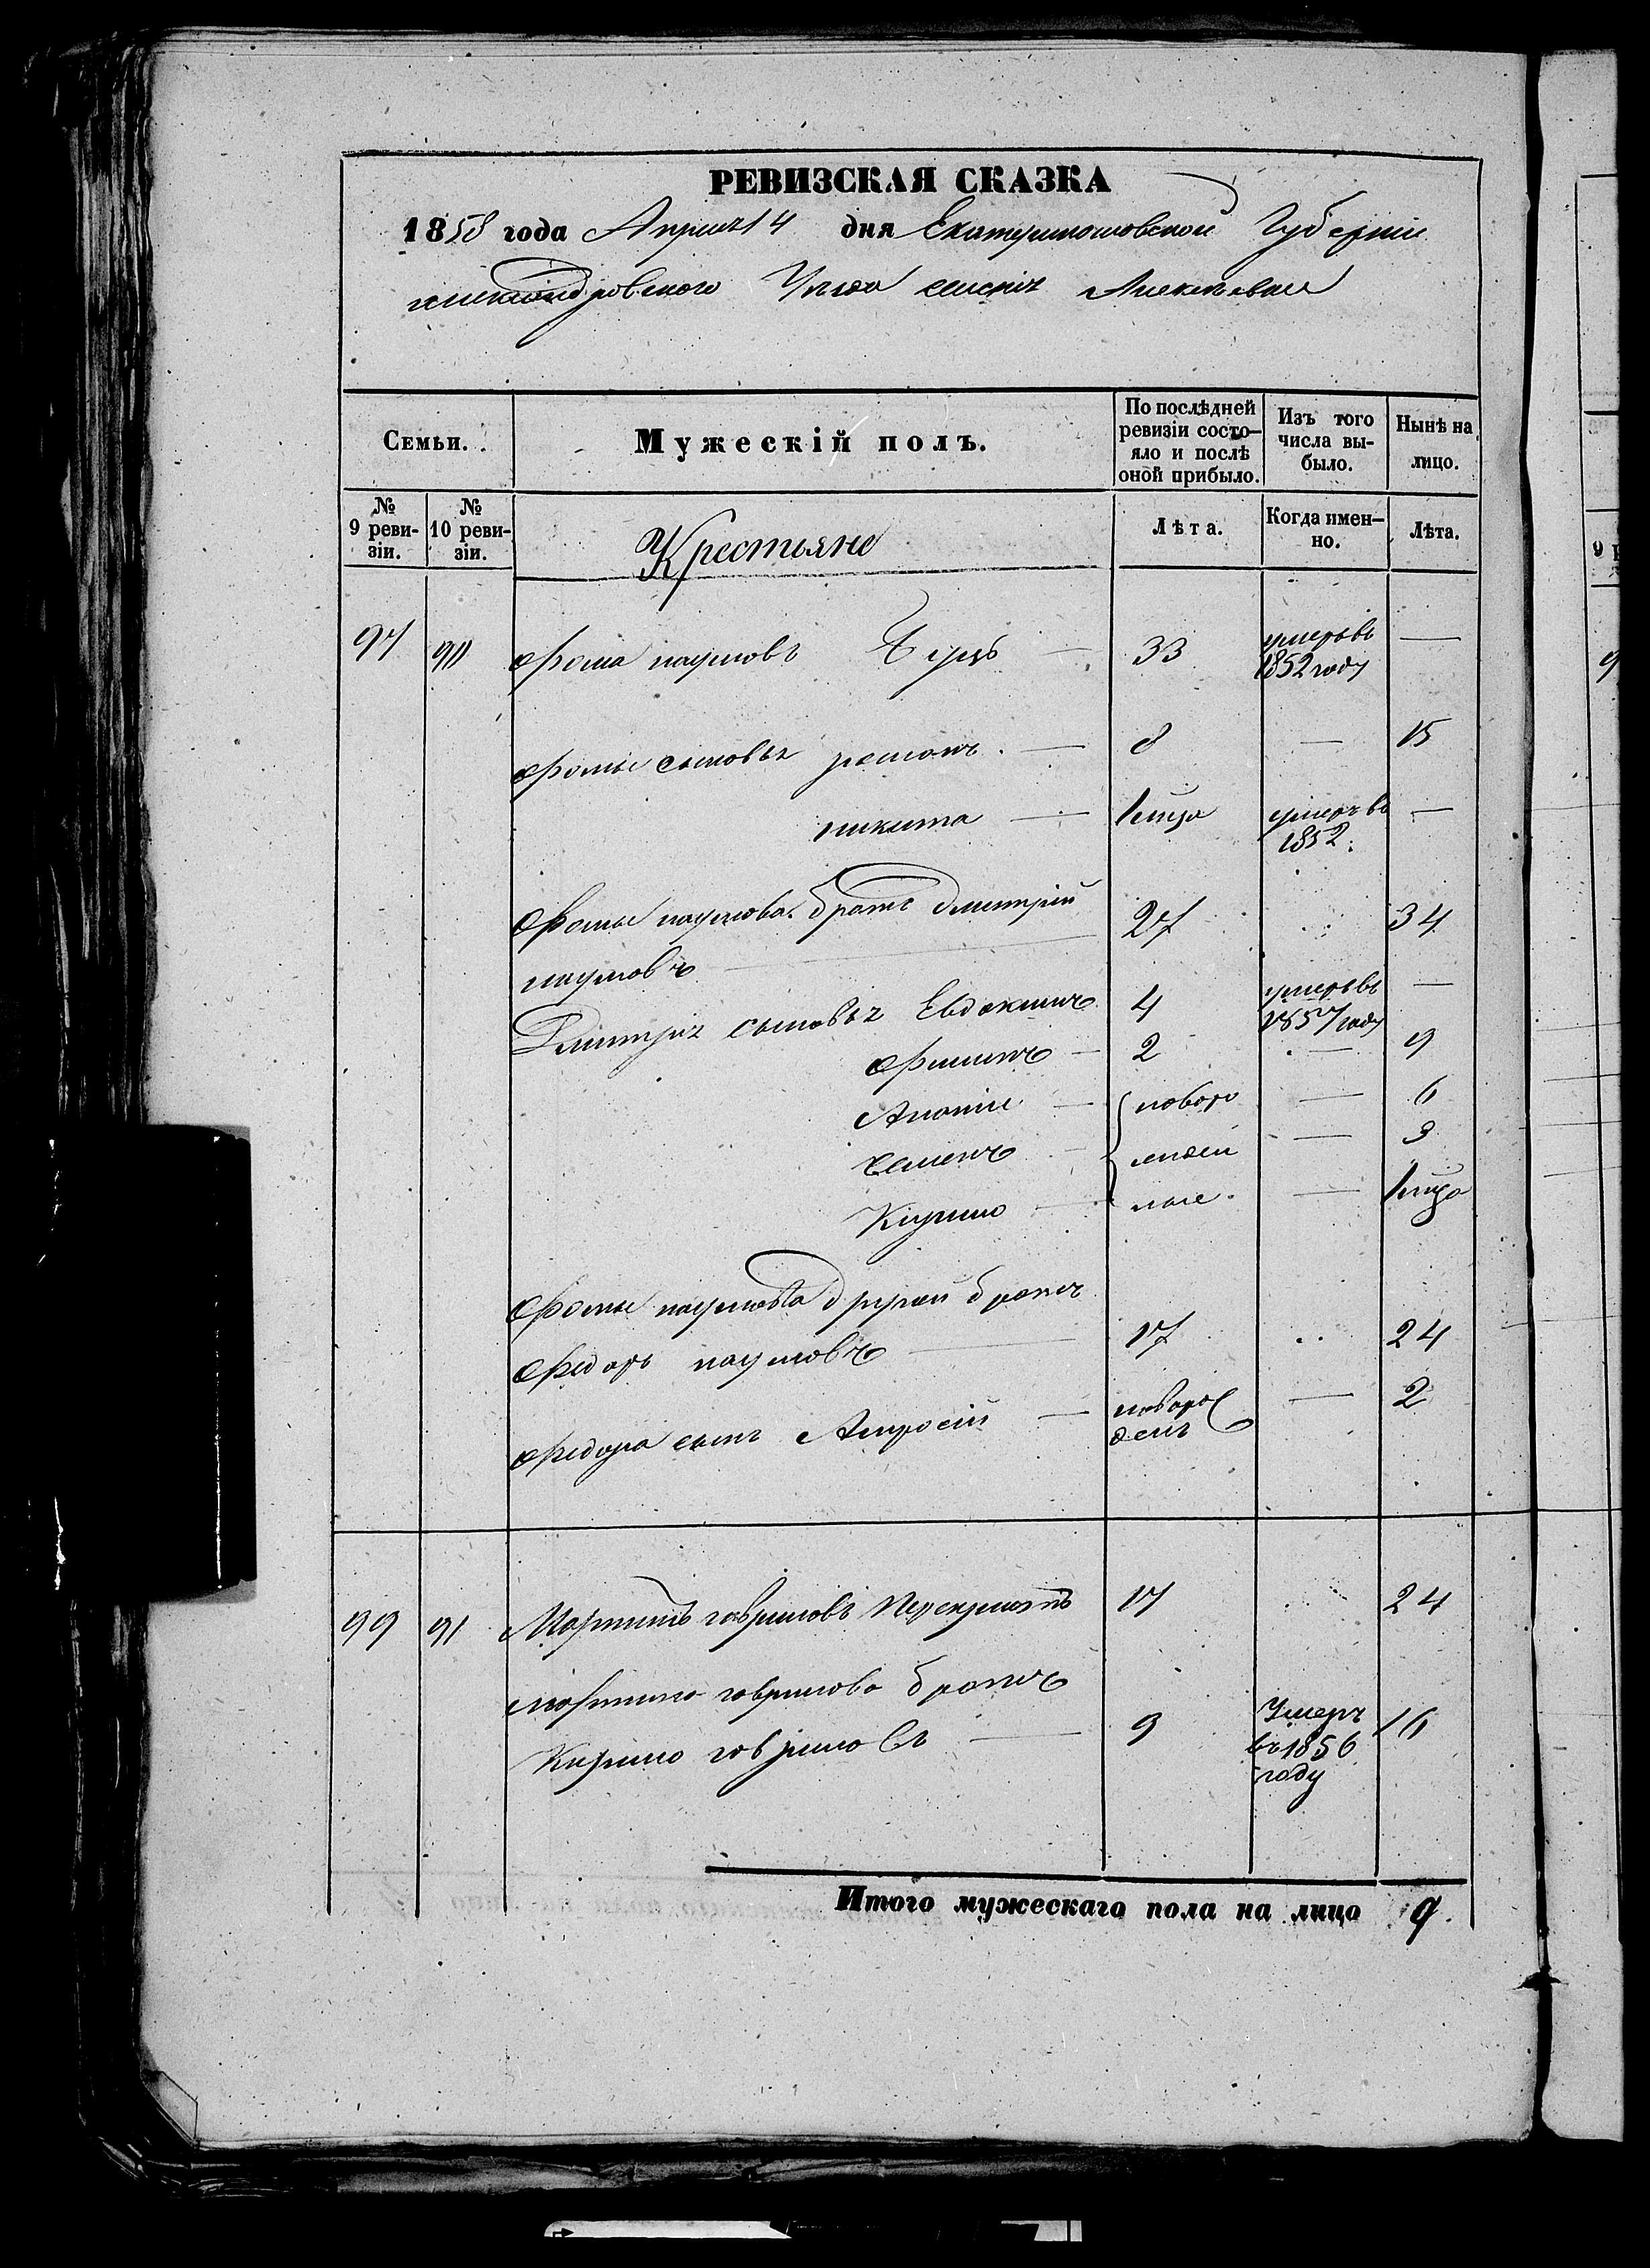 РЕВИЗСКАЯ СКАЗКА
1858 года Апреля 14 дня Екатеринославской Губернии
александровского Уезда селения Алексеевки
Семьи.
Мужескій полъ.
По послѣдней ревизіи состо-яло и послѣ оной прибыло.
Изъ того числа вы-было.
Нынѣ на лицо.
№ 9 реви-зіи.
№ 10 реви-зіи.
Крестьяне
Лѣта.
Когда имен-но.
Лѣта.
97 90 фома наумовъ 33 умеръ въ 1852 году —
фомы сыновья 8 — 15
никита 1 умеръ въ 1852. —
Фомы наумова братъ дмитрій
наумовъ 27 34
Дмитрія сыновья Евдокимъ 4 умеръ въ 1857 году —
филипъ 2 — 9
Ананій новоро — 6
Семенъ — 3
Кирило ные. — 1
Фомы наумова другой братъ
федоръ наумовъ 17 24
федора сынъ Амросій новорож денъ — 2
99 91 Мартинъ гавриловъ 17 24
мартина гаврилова братъ
Кирило гавриловъ 9 Умеръ въ 1856 году 16
Итого мужескаго пола на лицо 9